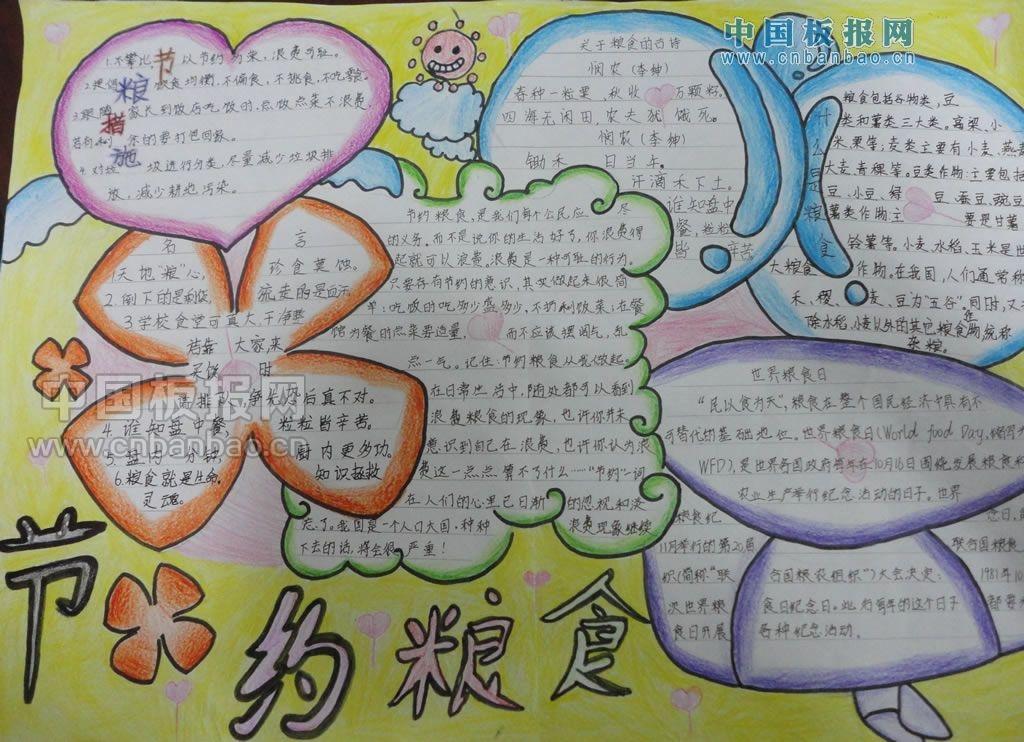 中国板报网
www.cnbanbao.cn
节粮措施
1.不攀比,以节约为荣,浪费可耻。
饮食均衡,不偏食,不挑食,不吃零食。
家长到饭店吃饭时,点饭点菜不浪费,
余的要打包回家。
4.对垃圾进行分类,尽量减少垃圾排
放,减少耕地污染。
关于粮食的古诗
悯农(李绅)
春种一粒粟,秋收 万颗籽。
四海无闲田,农夫犹饿死。
悯农(李绅)
锄禾日当午。
汗滴禾下土。
谁知盘中
餐,粒粒
皆辛苦
什么是粮食
粮食包括谷物类,豆
类和薯类三大类。高粱、小
米粟等;麦类主要有小麦、燕麦
大麦、青稞等。豆类作物:主要包括
豆、小豆、绿豆、蚕豆、豌豆
薯类作物:主要是甘薯
铃薯等。小麦、水稻、玉米是世
大粮食作物。在我国,人们通常称
禾、稷、麦、豆为“五谷”。同时,又
除水稻,小麦以外的其它粮食物统称
杂粮。
名言
1.天地“粮”心,珍食莫蚀。
2.倒下的是剩饭,流走的是血汗。
3.学校食堂可真大,干净整
洁靠大家来
买饭时
排队,争先恐后真不对。
4.谁知盘中餐粒粒皆辛苦。
厨内更多功。
6.粮食就是生命,知识拯救
灵魂。
节约粮食,是我们每个公民应尽
的义务。而不是说你的生活好了,你浪费得
起就可以浪费。浪费是一种可耻的行为。
只要存有节约的意识,其实做起来很简
单:吃饭时吃多少盛多少,不扔剩饭菜;在餐
馆为餐时点菜要适量,而不应该摆阔气,乱
点一气。记住:节约粮食从我做起。
在日常生活中,随处都可以看到
浪费粮食的现象,也许你并未
意识到自己在浪费,也许你认为浪
费这一点点算不了什么……“节约”一词
在人们的心里已日渐的忽视和淡
忘了。我国是一个人口大国,种种浪费现象继续
下去的话,将会很严重!
世界粮食日
“民以食为天”,粮食在整个国民经济中具有不
可替代的基础地位。世界粮食日(World food Day,缩写为
WFD),是世界各国政府每年在10月16日围绕发展粮食和
农业生产举行纪念活动的日子。世界
粮食纪念日,是
11月举行的第20届联合国粮食
织(简称“联合国粮农组织”)大会决定:1981年10
次世界粮食日纪念日。此后每年的这个日子都要
食日开展各种纪念活动。
中国板报网
www.cnbanbao.cn
节约粮食